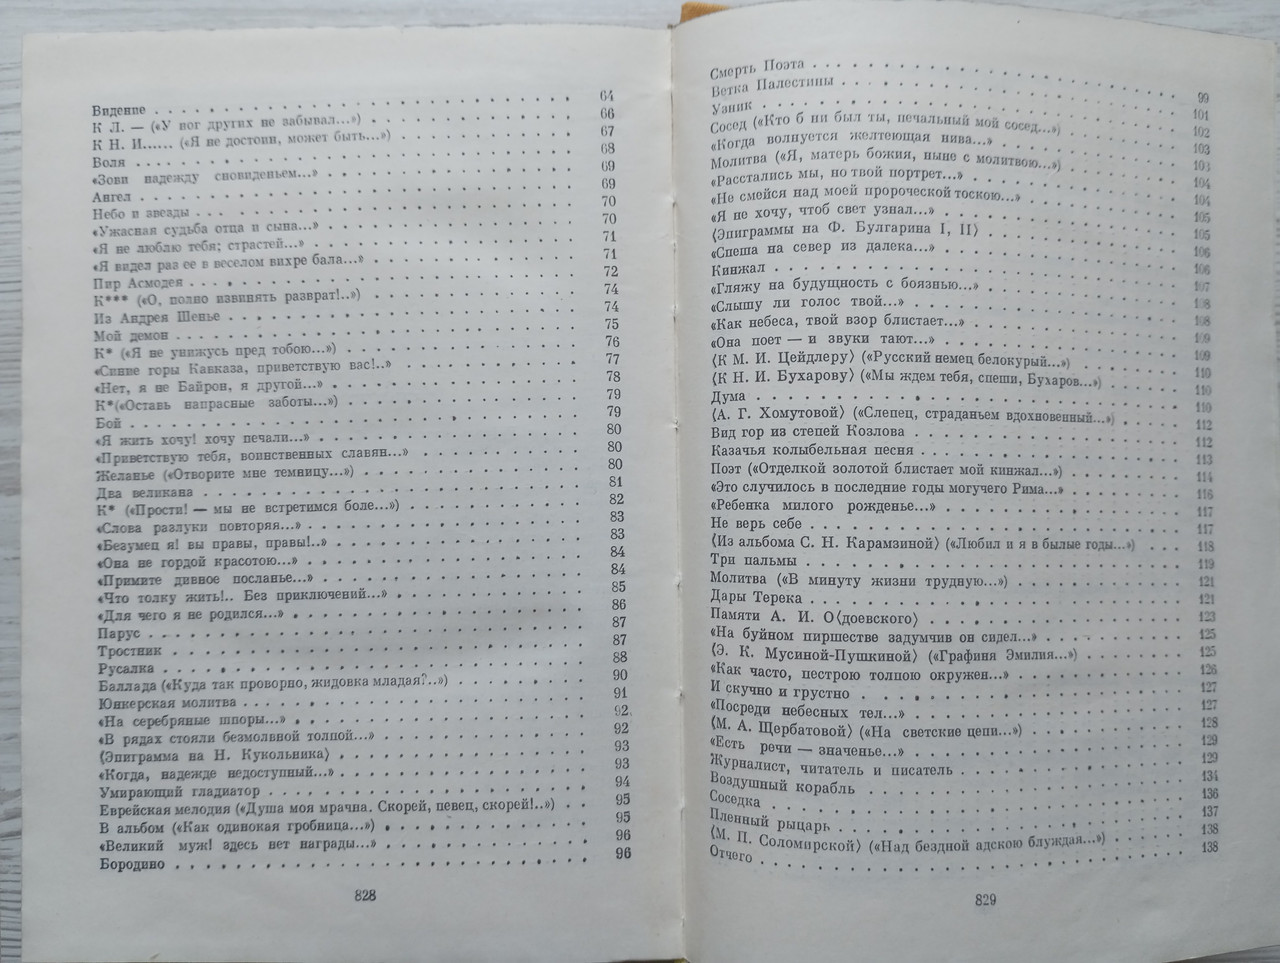 Видение . . . . . . . . . . 64
К Л. — («У ног других не забывал...») . . . . . . . . . . 66
К Н. И...... («Я не достоин, может быть...») . . . . . . . . . . 67
Воля . . . . . . . . . . 68
«Зови надежду сновиденьем...» . . . . . . . . . . 69
Ангел . . . . . . . . . . 69
Небо и звезды . . . . . . . . . . 70
«Ужасная судьба отца и сына...» . . . . . . . . . . 70
«Я не люблю тебя; страстей...» . . . . . . . . . . 71
«Я видел раз ее в веселом вихре бала...» . . . . . . . . . . 71
Пир Асмодея . . . . . . . . . . 72
К*** («О, полно извинять разврат!..») . . . . . . . . . . 74
Из Андрея Шенье . . . . . . . . . . 74
Мой демон . . . . . . . . . . 75
К* («Я не унижусь пред тобою...») . . . . . . . . . . 76
«Синие горы Кавказа, приветствую вас!..» . . . . . . . . . . 77
«Нет, я не Байрон, я другой...» . . . . . . . . . . 78
К*(«Оставь напрасные заботы...») . . . . . . . . . . 79
Бой . . . . . . . . . . 79
«Я жить хочу! хочу печали...» . . . . . . . . . . 80
«Приветствую тебя, воинственных славян...» . . . . . . . . . . 80
Желанье («Отворите мне темницу...») . . . . . . . . . . 80
Два великана . . . . . . . . . . 81
К* («Прости! — мы не встретимся боле...») . . . . . . . . . . 82
«Слова разлуки повторяя...» . . . . . . . . . . 83
«Безумец я! вы правы, правы!..» . . . . . . . . . . 83
«Она не гордой красотою...» . . . . . . . . . . 84
«Примите дивное посланье...» . . . . . . . . . . 84
«Что толку жить!.. Без приключений...» . . . . . . . . . . 85
«Для чего я не родился...» . . . . . . . . . . 86
Парус . . . . . . . . . . 87
Тростник . . . . . . . . . . 87
Русалка . . . . . . . . . . 88
Баллада («Куда так проворно, жидовка младая?..») . . . . . . . . 90
Юнкерская молитва . . . . . . . . . . 91
«На серебряные шпоры...» . . . . . . . . . . 92
«В рядах стояли безмолвной толпой...» . . . . . . . . . . 92
⟨Эпиграмма на Н. Кукольника⟩ . . . . . . . . . . 93
«Когда, надежде недоступный...» . . . . . . . . . . 93
Умирающий гладиатор . . . . . . . . . . 94
Еврейская мелодия («Душа моя мрачна. Скорей, певец, скорей!..») . . 95
В альбом («Как одинокая гробница...») . . . . . . . . . . 95
«Великий муж! здесь нет награды...» . . . . . . . . . . 96
Бородино . . . . . . . . . . 96
828
Смерть Поэта . . . . . . . . . . 99
Ветка Палестины . . . . . . . . . . 101
Узник . . . . . . . . . . 102
Сосед («Кто б ни был ты, печальный мой сосед...») . . . . . . . . 103
«Когда волнуется желтеющая нива...» . . . . . . . . . . 103
Молитва («Я, матерь божия, ныне с молитвою...») . . . . . . . . 104
«Расстались мы, но твой портрет...» . . . . . . . . . . 104
«Не смейся над моей пророческой тоскою...» . . . . . . . . . . 105
«Я не хочу, чтоб свет узнал...» . . . . . . . . . . 105
⟨Эпиграммы на Ф. Булгарина I, II⟩ . . . . . . . . . . 106
«Спеша на север из далека...» . . . . . . . . . . 106
Кинжал . . . . . . . . . . 107
«Гляжу на будущность с боязнью...» . . . . . . . . . . 108
«Слышу ли голос твой...» . . . . . . . . . . 108
«Как небеса, твой взор блистает...» . . . . . . . . . . 109
«Она поет — и звуки тают...» . . . . . . . . . . 109
⟨К М. И. Цейдлеру⟩ («Русский немец белокурый...») . . . . . . . 110
⟨К Н. И. Бухарову⟩ («Мы ждем тебя, спеши, Бухаров...») . . . . . 110
Дума . . . . . . . . . . 110
⟨А. Г. Хомутовой⟩ («Слепец, страданьем вдохновенный...») . . . . 112
Вид гор из степей Козлова . . . . . . . . . . 112
Казачья колыбельная песня . . . . . . . . . . 113
Поэт («Отделкой золотой блистает мой кинжал...») . . . . . . . . 114
«Это случилось в последние годы могучего Рима...» . . . . . . . . 116
«Ребенка милого рожденье...» . . . . . . . . . . 117
Не верь себе . . . . . . . . . . 117
⟨Из альбома С. Н. Карамзиной⟩ («Любил и я в былые годы...») . . . 118
Три пальмы . . . . . . . . . . 119
Молитва («В минуту жизни трудную...») . . . . . . . . . . 121
Дары Терека . . . . . . . . . . 121
Памяти А. И. О⟨доевского⟩ . . . . . . . . . . 123
«На буйном пиршестве задумчив он сидел...» . . . . . . . . . . 125
⟨Э. К. Мусиной-Пушкиной⟩ («Графиня Эмилия...») . . . . . . . . 125
«Как часто, пестрою толпою окружен...» . . . . . . . . . . 126
И скучно и грустно . . . . . . . . . . 127
«Посреди небесных тел...» . . . . . . . . . . 127
⟨М. А. Щербатовой⟩ («На светские цепи...») . . . . . . . . . . 128
«Есть речи — значенье...» . . . . . . . . . . 129
Журналист, читатель и писатель . . . . . . . . . . 129
Воздушный корабль . . . . . . . . . . 134
Соседка . . . . . . . . . . 136
Пленный рыцарь . . . . . . . . . . 137
⟨М. П. Соломирской⟩ («Над бездной адскою блуждая...») . . . . . 138
Отчего . . . . . . . . . . 138
829